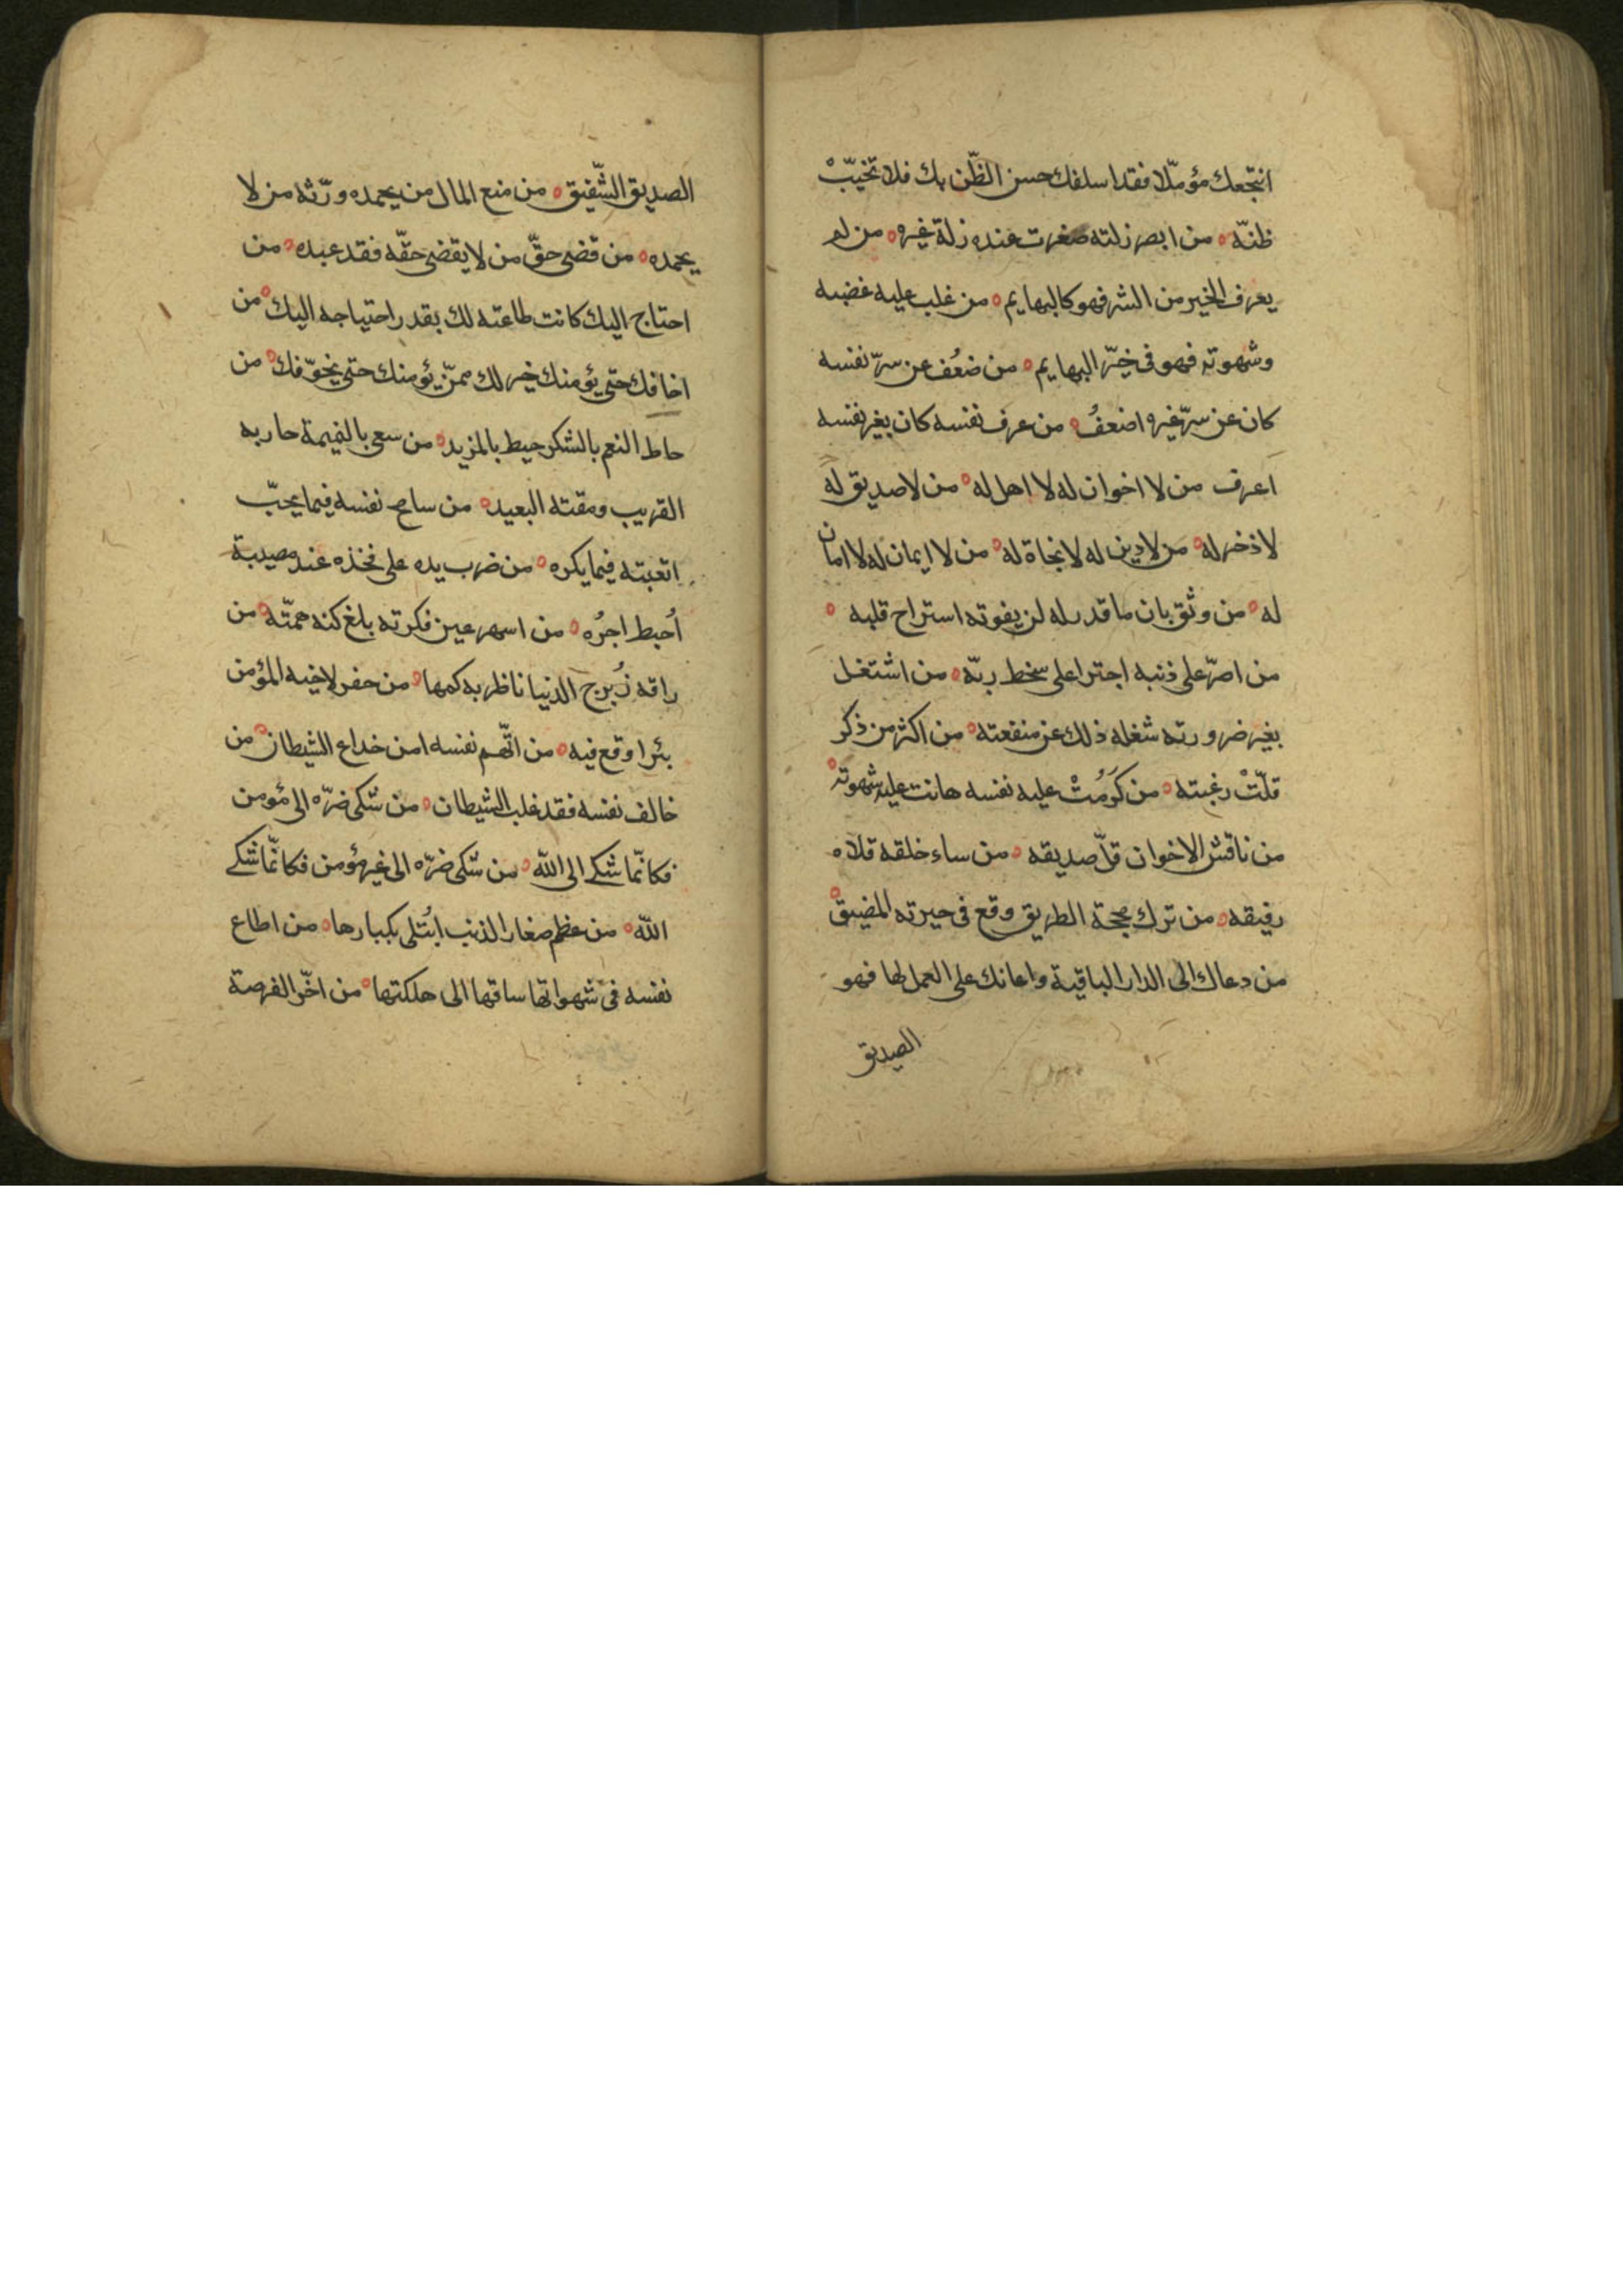 انتجعك مؤمّلا فقد اسلفك حسن الظّن بك فلا تخيّبْ
ظنّه ۰ من ابصر زلته صغرت عنده زلة غيره ۰ من لم
يعرف الخير من الشر فهو كالبهايم ۰ من غلب عليه غضبه
وشهوته فهو فى حيّز البهايم ۰ من ضعُف عن سرّ نفسه
كان عن سرّ غيره اضعفُ ۰ من عرف نفسه كان بغير نفسه
اعرف من لا اخوان له لا اهل له ۰ من لا صديق له
لا ذخر له ۰ من لا دين له لا نجاة له ۰ من لا ايمان له لا امان
له ۰ من وثق بان ما قدر له لن يفوته استراح قلبه ۰
من اصرّ على ذنبه اجترا على سخط ربّه ۰ من اشتغل
بغير ضرورته شغله ذلك عن منفعته ۰ من اكثر من ذكر
قلّتْ رغبته ۰ من كَرُمتْ عليه نفسه هانت عليه شهوته ۰
من ناقش الاخوان قلّ صديقه ۰ من ساء خلقه قلاه
رفيقه ۰ من ترك محجة الطريق وقع فى حيرته المضيق ۰
من دعاك الى الدار الباقية واعانك على العمل لها فهو
الصديق
الصديق الشّفيق ۰ من منع المال من يحمده ورّثه من لا
يحمده ۰ من قضى حقّ من لا يقضى حقّه فقد عبده ۰ من
احتاج اليك كانت طاعته لك بقدر احتياجه اليك ۰ من
اخافك حتى يؤمنك خير لك ممّن يؤمنك حتى يخوّفك ۰ من
حاط النعم بالشكر حيط بالمزيد ۰ من سعى بالنميمة حاربه
القريب ومقته البعيد ۰ من سامح نفسه فيما يحبّ
اتعبته فيما يكره ۰ من ضرب يده على فخذه عند مصيبة
اُحبط اجرُه ۰ من اسهر عين فكرته بلغ كنه همّته ۰ من
راقه زُبرج الدنيا ناظر به كمها ۰ من حفر لاخيه المؤمن
بئرا وقع فيه ۰ من اتّهم نفسه امن خداع الشيطان ۰ من
خالف نفسه فقد غلب الشيطان ۰ من شكى ضرّه الى مؤمن
فكانّما شكى الى الله ۰ من شكى ضرّه الى غير مؤمن فكانّما شكى
الله ۰ من عظم صغار الذنب ابُتلى بكبارها ۰ من اطاع
نفسه فى شهواتها ساقها الى هلكتها ۰ من اخّر الفرصة